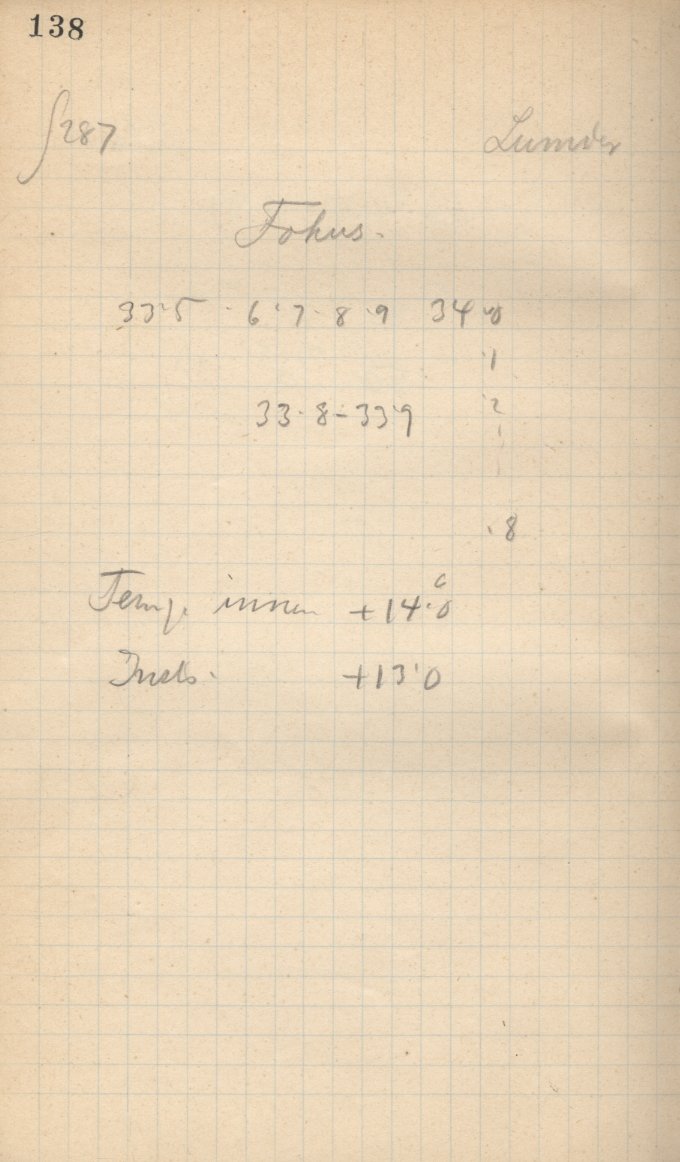 138
287 Lumière
Fokus.
33·5 · 6 · 7 · 8 · 9 34·0
·1
33·8 – 33·9 ·2
·8
Temp. innen +14·0
+13·0